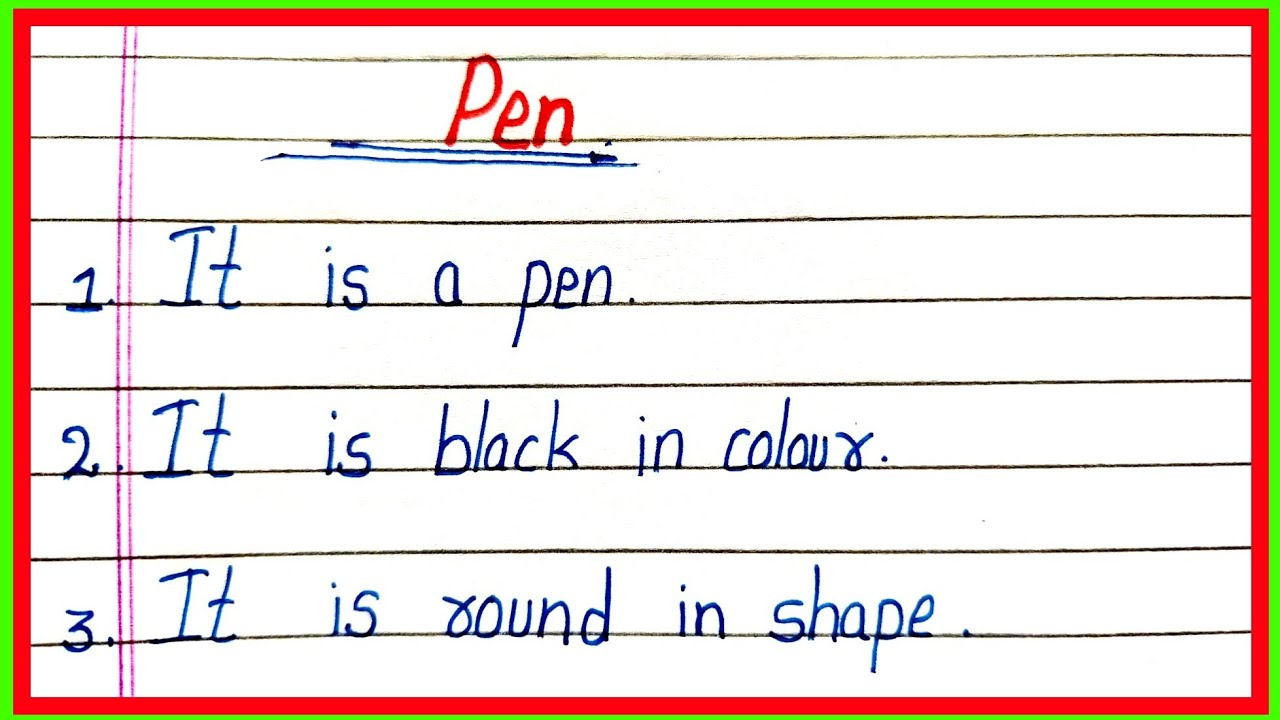 Pen
1. It is a pen.
2. It is black in colour.
3. It is round in shape.